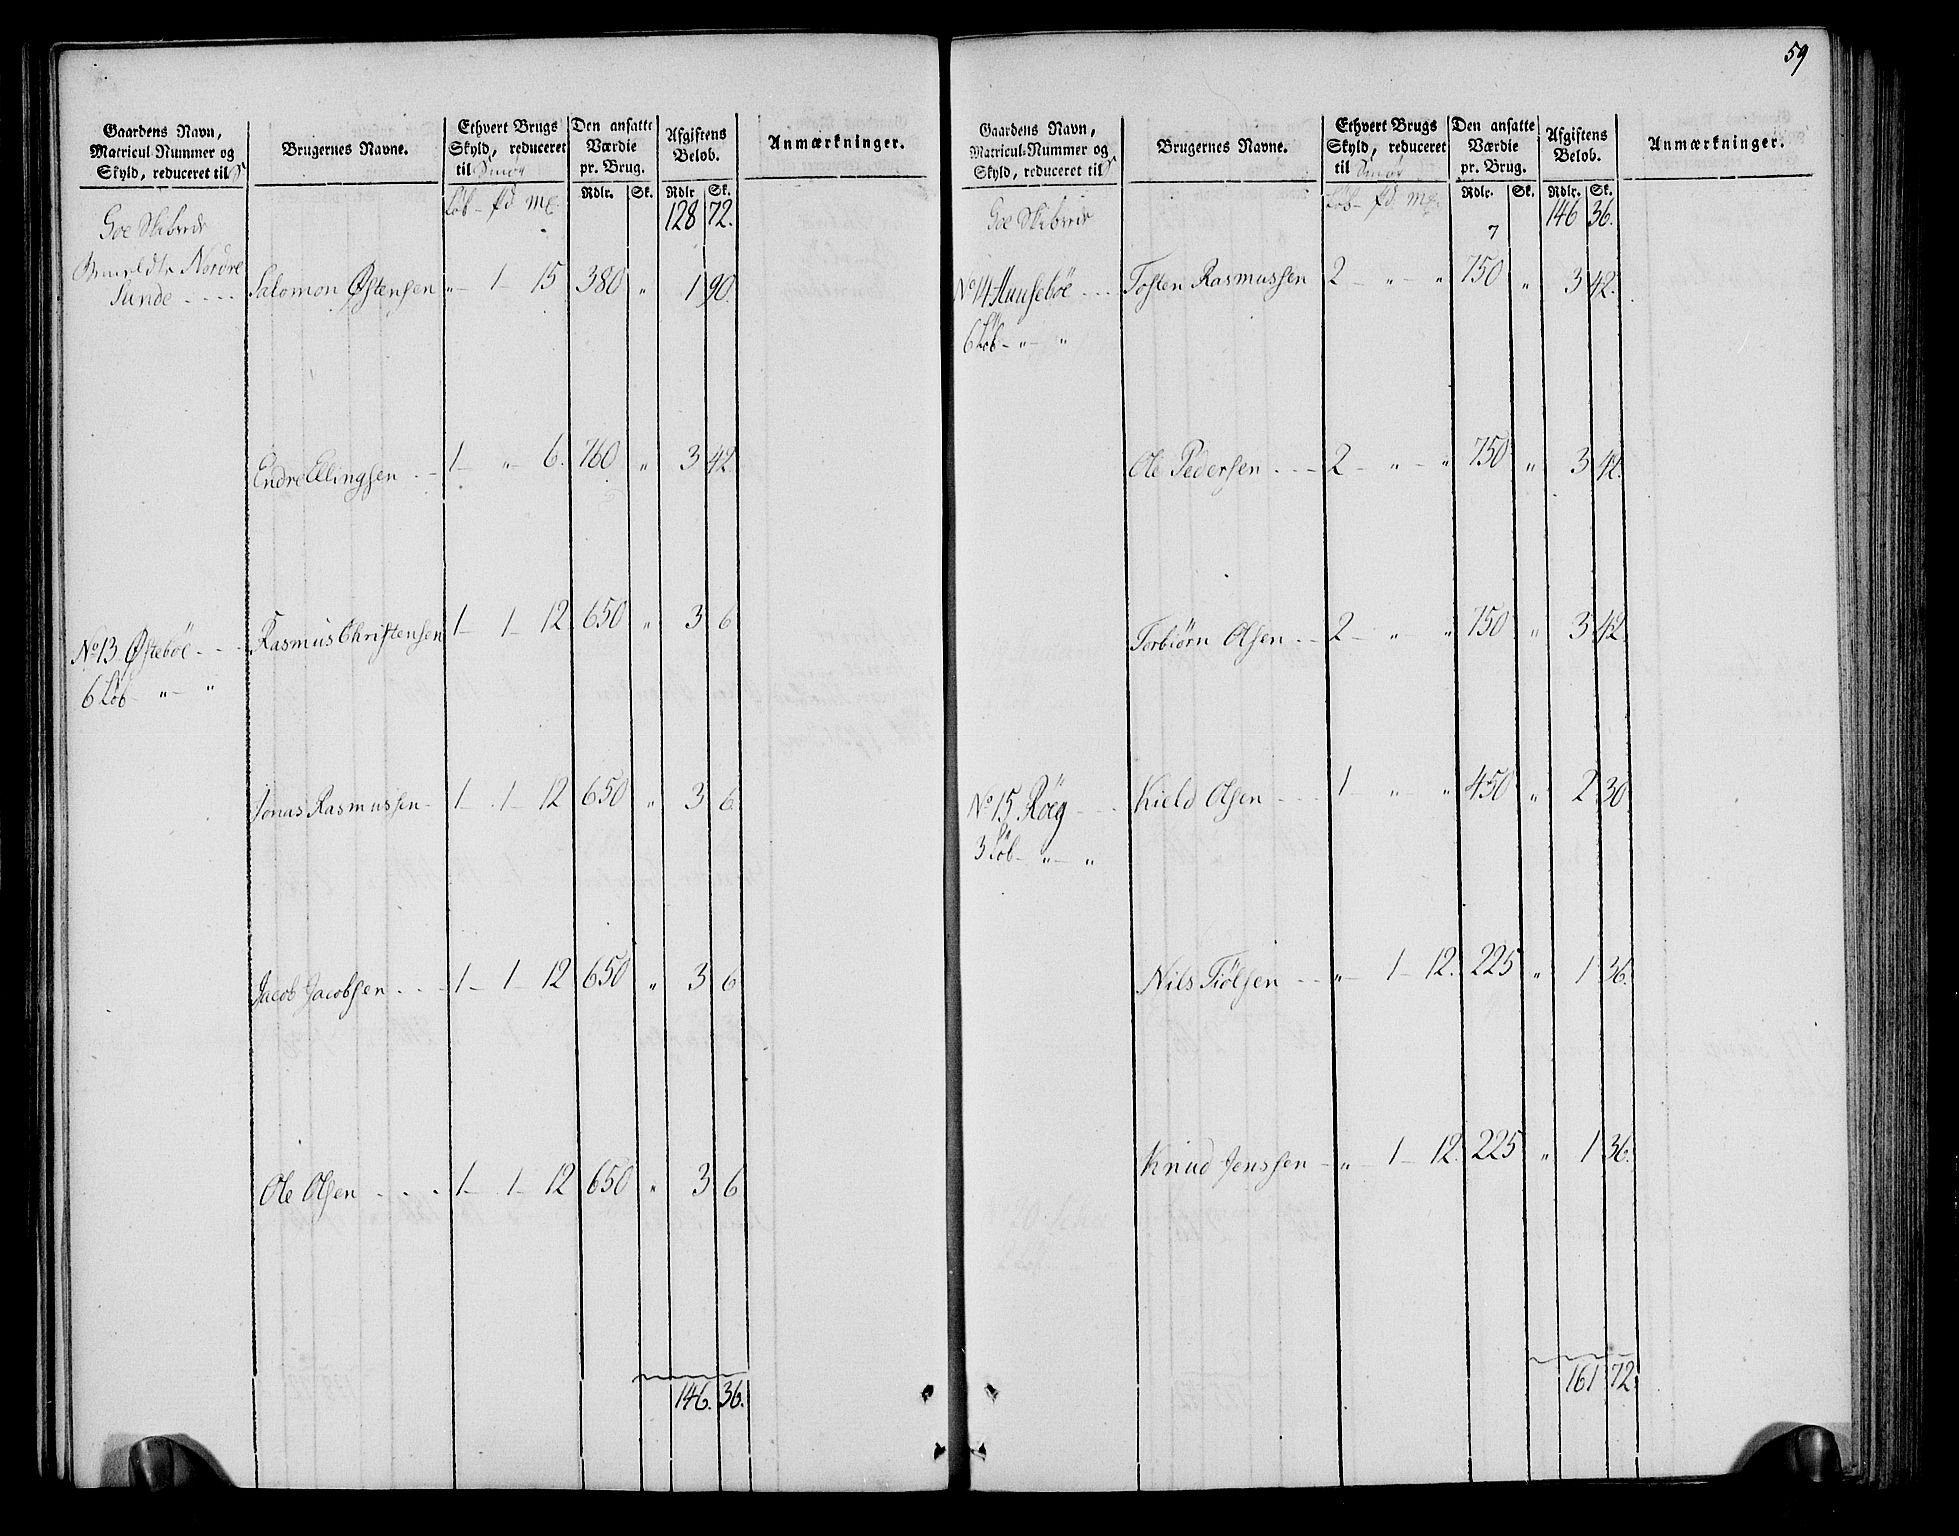 59
Gaardens Navn, Matricul-Nummer og Skyld, reduceret til S
Brugernes Navne.
Ethvert Brugs Skyld, reduceret til Smør
Den ansatte Værdie pr. Brug.
Afgiftens Beløb.
Anmærkninger.
Løb - pd mk Rdlr. Sk. Rdlr Sk.
Goe Skibrede 128 72.
Nordre
Sunde - - - - Salomon Østensen „ - 1 - 15 380 „ 1 90.
Endre Ellingsen . - 1 - „ 6. 760 „ 3 42
No 13 Østebøe - - - Rasmus Christensen 1 - 1 - 12 650 „ 3 6
6 Løb - „ - „
Jonas Rasmussen - 1 - 1 - 12 650 „ 3 6
Jacob Jacobsen . - - 1 - 1 - 12 650 „ 3 6
Ole Olsen . . . 1 - 1 - 12 650 „ 3 6
146. 36.
Gaardens Navn, Matricul-Nummer og Skyld, reduceret til S
Brugernes Navne.
Ethvert Brugs Skyld, reduceret til Smør
Den ansatte Værdie pr. Brug.
Afgiftens Beløb.
Anmærkninger.
Løb - pd. mk. Rdlr. Sk. Rdlr. Sk.
Goe Skibrede 146 36.
7
No 14 - - - Tosten Rasmussen 2 - „ - „ 750 „ 3 42.
6 Løb - „ - „
Ole Pedersen - - - 2 - „ - „ 750 „ 3 42.
Torbiørn Olsen - - 2 - „ - „ 750 „ 3 42
No 15 Røeg - - - Kield Olsen - - - 1 - „ - „ 450 „ 2 30
3 Løb - „ - „
Nils Tiølsen - - „ - 1 - 12. 225 „ 1 36.
Knud Jenssen - „ - 1 - 12. 225 „ 1 36.
161 72